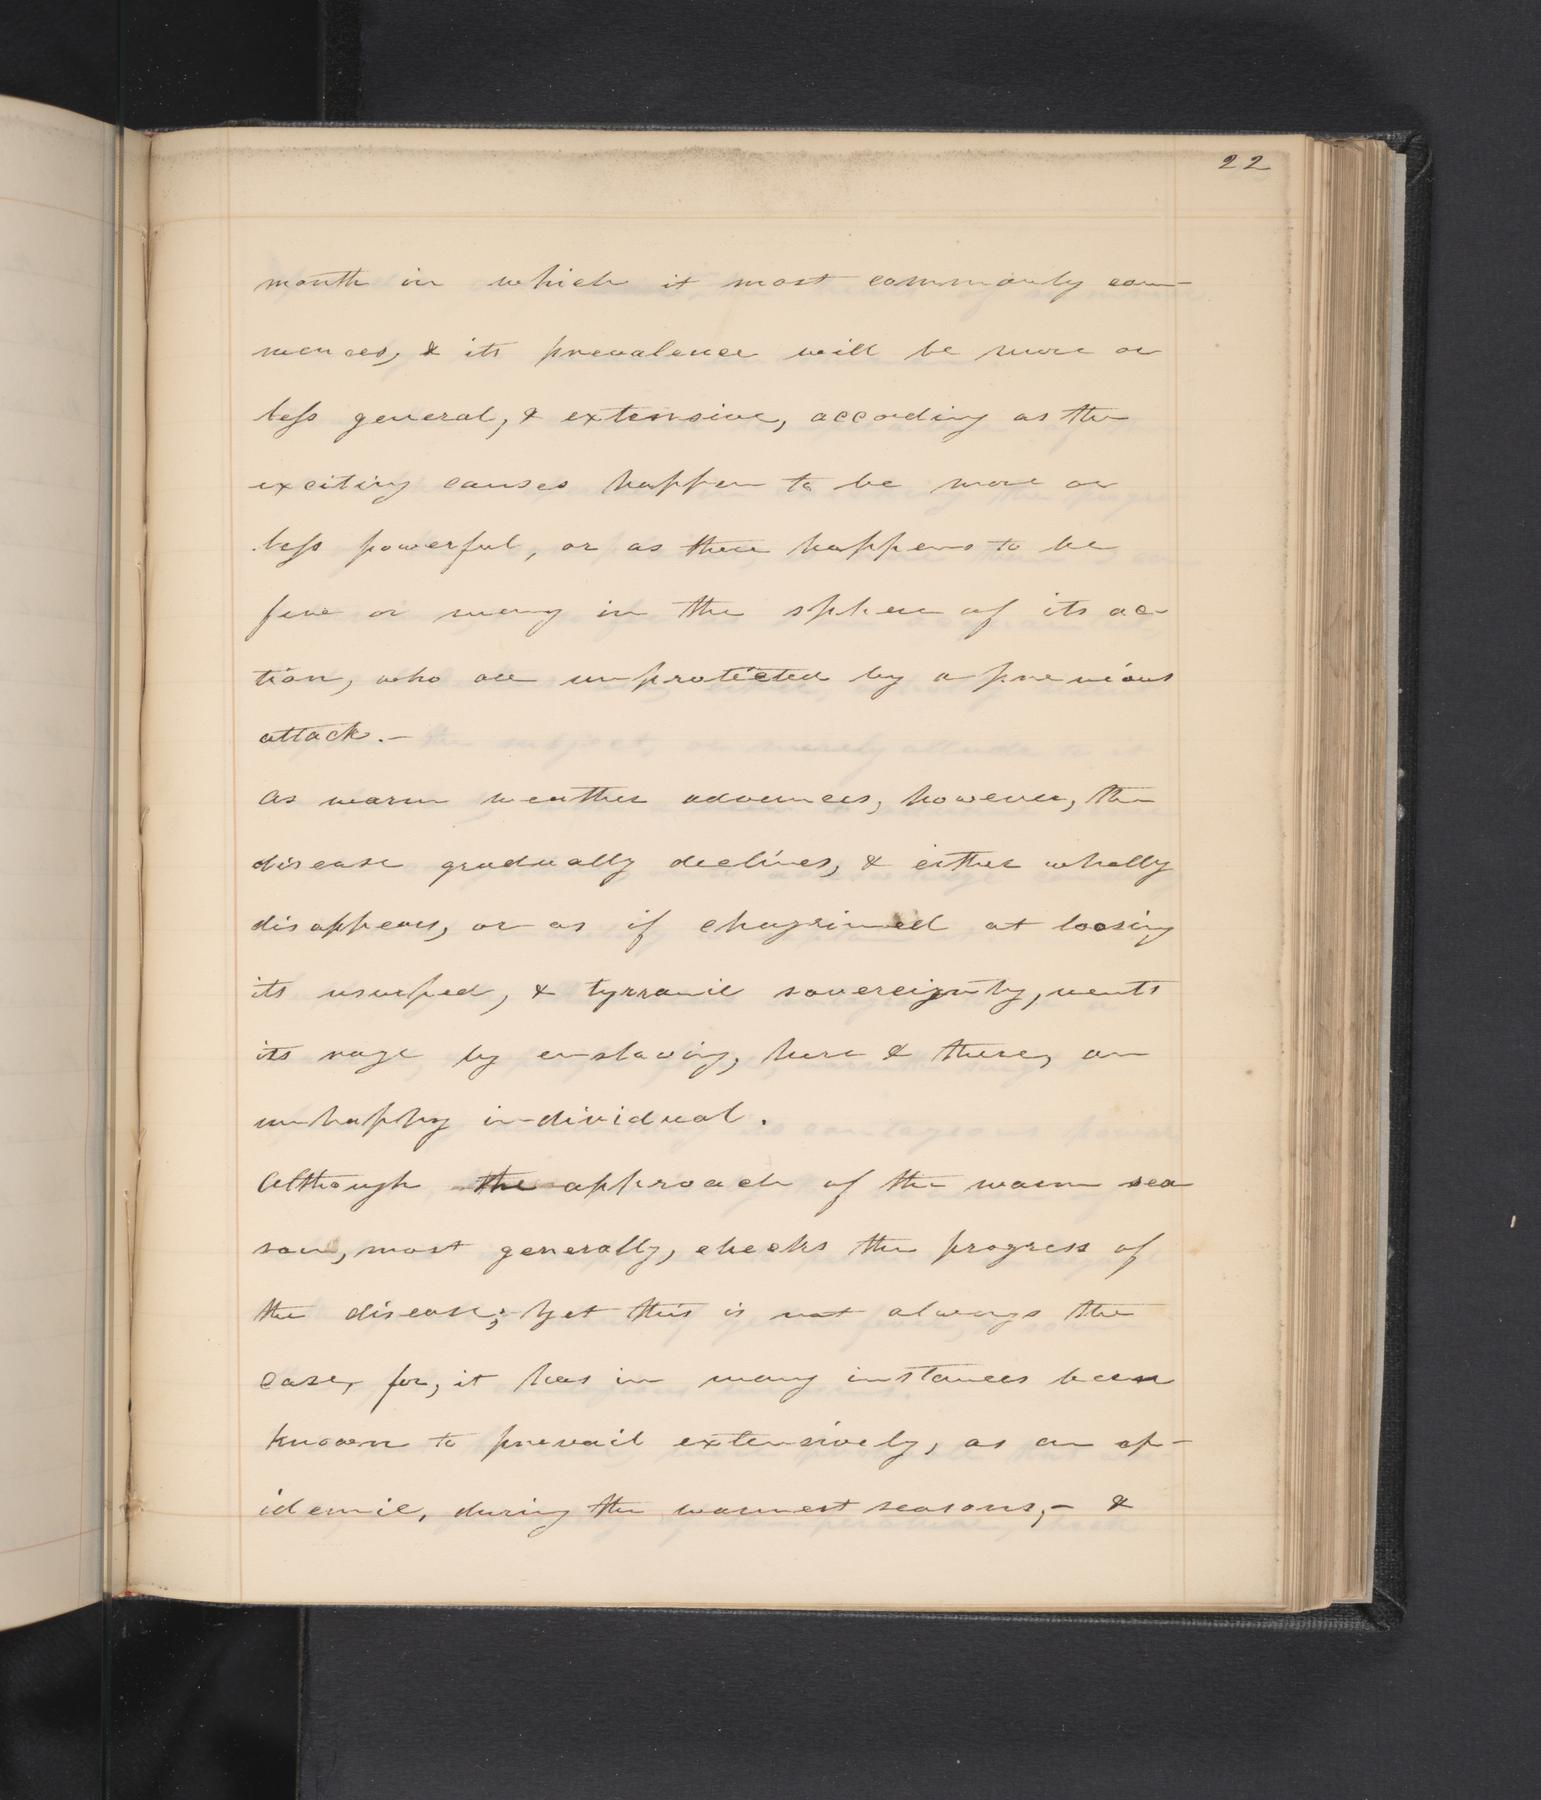 22
month in which it most commonly com-
mences, & its prevalence will be more or
less general, & extensive, according as the
exciting causes happen to be more or
less powerful, or as there happens to be
few or many in the sphere of its ac-
tion, who are unprotected by a previous
attack.-
As warm weather advances, however, the
disease gradually declines, & either wholly
disappears, or as if chagrined at loosing
its usurped, & tyrranic sovereignty, vents
its rage by enslaving, here & there, an
unhappy individual.
Although the approach of the warm sea
son, most generally, checks the progress of
the disease; Yet this is not always the
case, for, it has in many instances been
known to prevail extensively, as an ep-
idemic, during the warmest seasons,- &